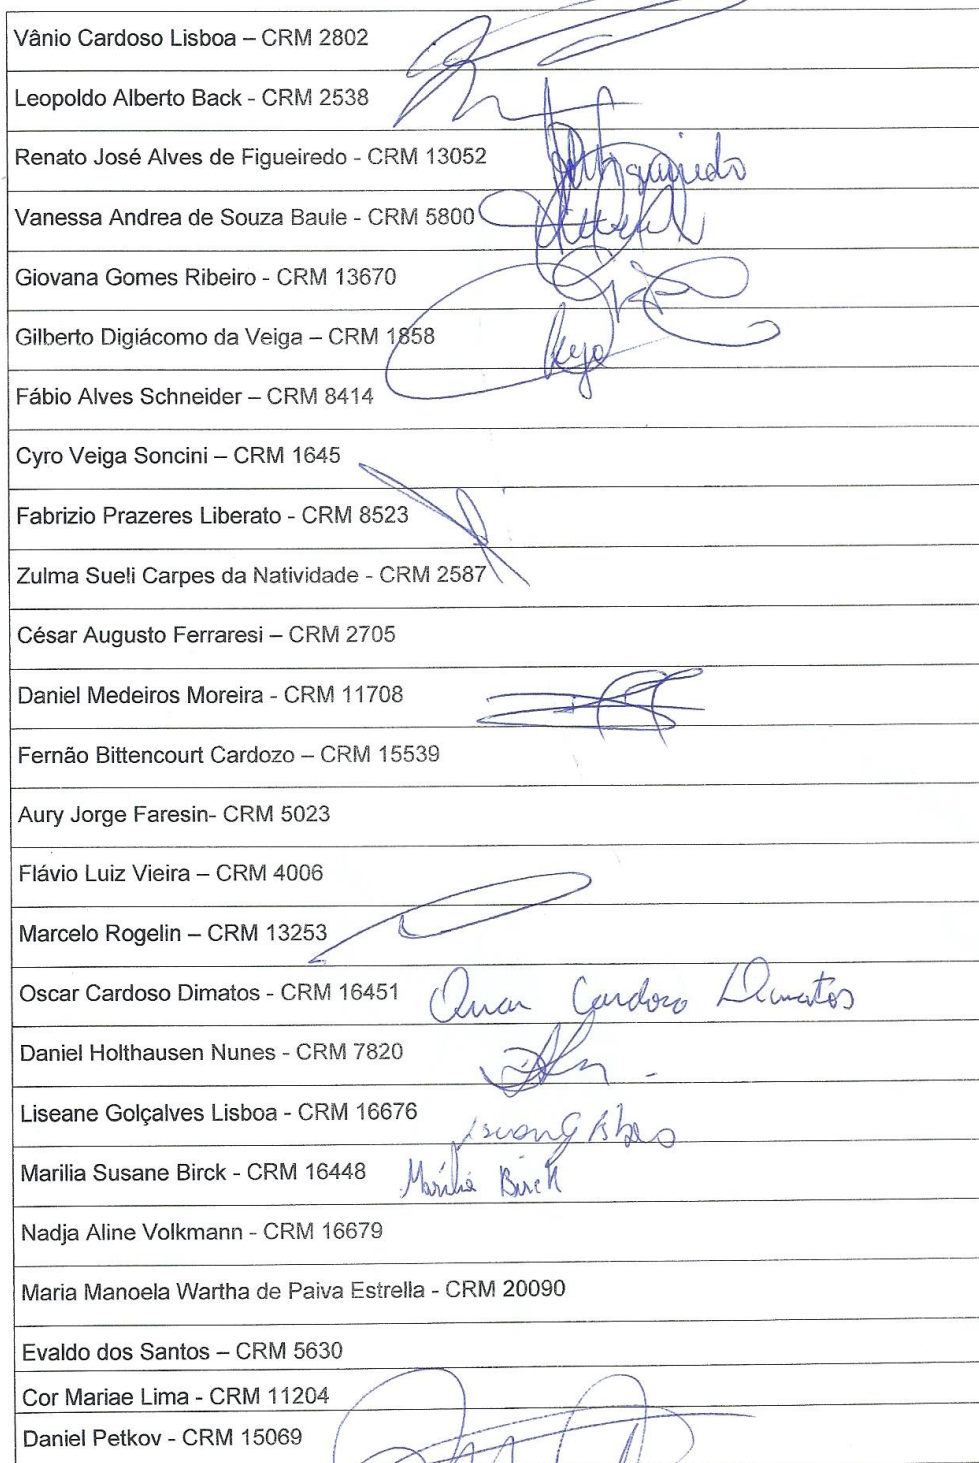 Vânio Cardoso Lisboa – CRM 2802
Leopoldo Alberto Back - CRM 2538
Renato José Alves de Figueiredo - CRM 13052
Vanessa Andrea de Souza Baule - CRM 5800
Giovana Gomes Ribeiro - CRM 13670
Gilberto Digiácomo da Veiga – CRM 1858
Fábio Alves Schneider – CRM 8414
Cyro Veiga Soncini – CRM 1645
Fabrizio Prazeres Liberato - CRM 8523
Zulma Sueli Carpes da Natividade - CRM 2587
César Augusto Ferraresi – CRM 2705
Daniel Medeiros Moreira - CRM 11708
Fernão Bittencourt Cardozo – CRM 15539
Aury Jorge Faresin- CRM 5023
Flávio Luiz Vieira – CRM 4006
Marcelo Rogelin – CRM 13253
Oscar Cardoso Dimatos - CRM 16451 Oscar Cardoso Dimatos
Daniel Holthausen Nunes - CRM 7820
Liseane Golçalves Lisboa - CRM 16676
Marilia Susane Birck - CRM 16448 Marília Birck
Nadja Aline Volkmann - CRM 16679
Maria Manoela Wartha de Paiva Estrella - CRM 20090
Evaldo dos Santos – CRM 5630
Cor Mariae Lima - CRM 11204
Daniel Petkov - CRM 15069